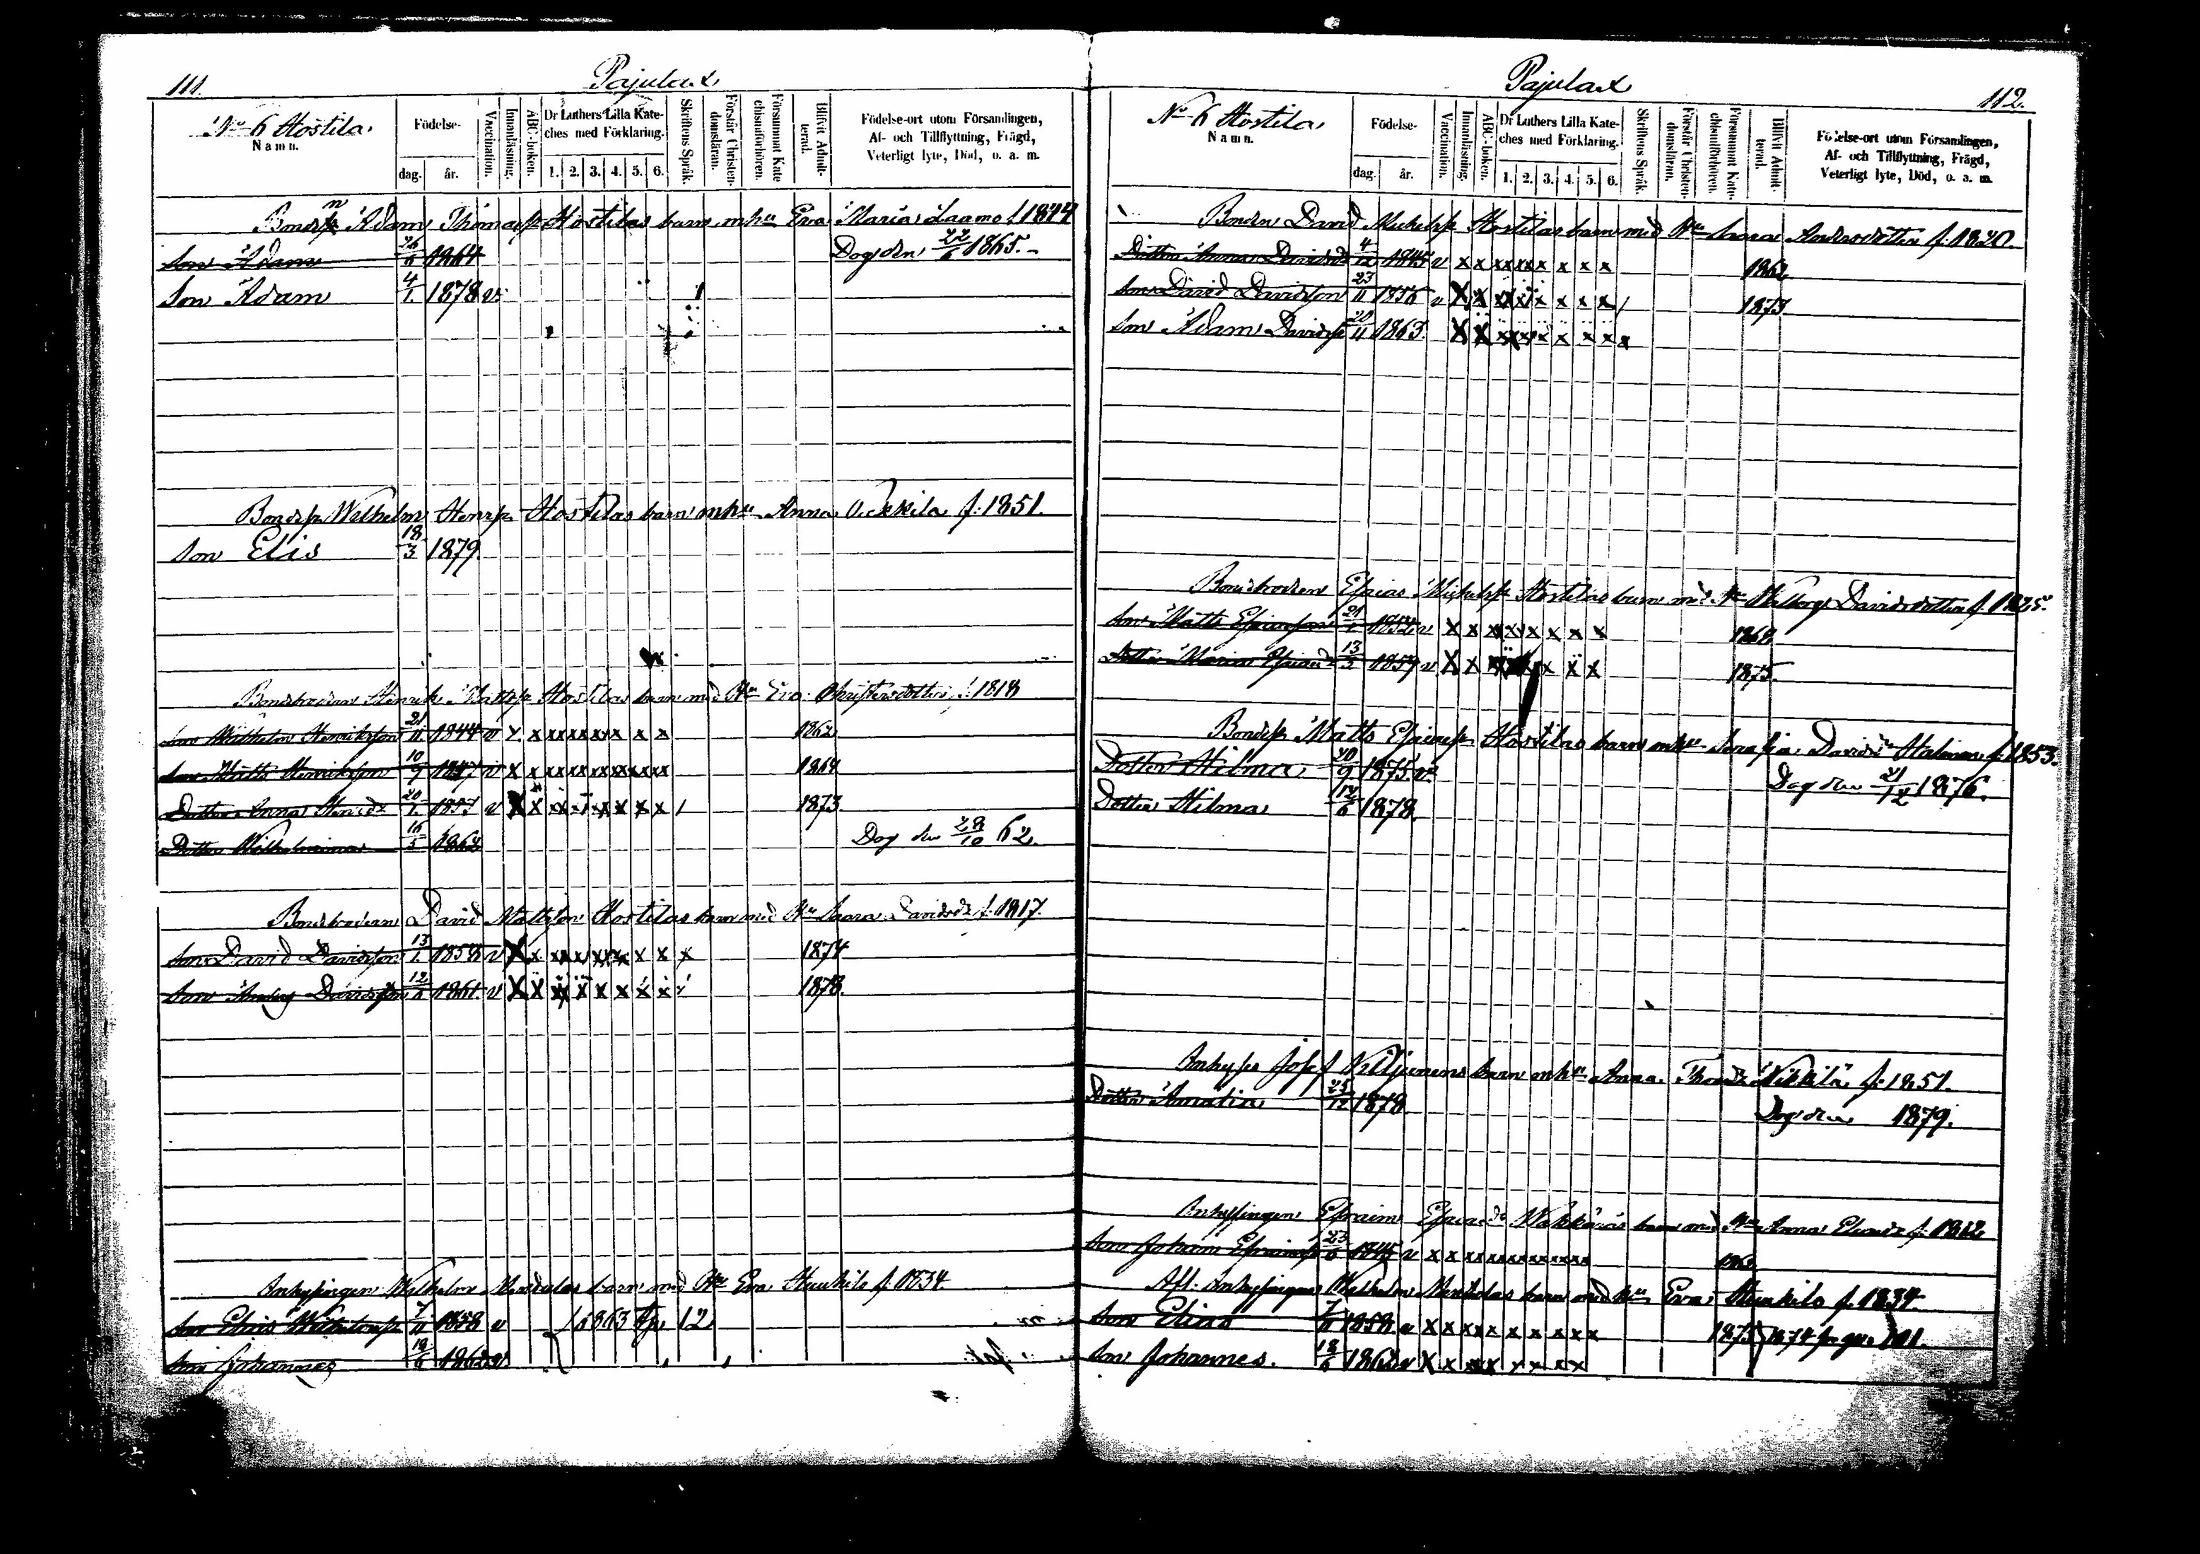 111.
Pajulax
No 6 Hostila.
Namn.
Födelse-
dag.
år.
Vaccination.
Innanläsning.
ABC-boken.
Dr Luthers Lilla Kate-
ches med Förklaring.
1. 2. 3. 4. 5. 6.
Skriftens Språk.
Förstår Christen-
domsläran.
Försummat Kate-
chismiförhören.
Blifvit Admit-
terad.
Födelse-ort utom Församlingen,
Af- och Tillflyttning, Frägd,
Veterligt lyte, Död, o. a. m.
Adam Thomass. Hostilas barn m hu Eva Maria Laamo f. 1844
Son Adam 26/6 1864 Dog den 22/6 1865.
Son Adam 4/1 1878 v.
Bondes. Wilhelm Henrs. Hostilas barn m hu Anna f. 1851.
Son Elis 18/3 1879.
Bondbrodren Henrik Mattss. Hostilas barn med Hu Eva Christersdotter f. 1818
Son Wilhelm Henriksson 21/11 1844 v x x x x x x x x x 1862
Son Matts Henriksson 10/9 1847 v x x x x x x x x x x 1864
Dotter Anna Henrsdr 20/1 1857 v x x x x x x x x 1873
Dotter Wilhelmina 16/5 1862 Dog den 28/10 62.
Bondbrodren David Mattsson Hostilas barn med Hu Saara Davidsdr f. 1817.
Son David Davidsson 13/1 1858 v x x x x x x x x x 1874
Son Davidsson 12/6 1861 v x x x x x x x x 1878.
Inhysingen Wilhelm barn med Hu Eva f. 1834.
Son Elias Wilhelmss. 7/11 1858 v 12
Son Johannes 18/6 1862 v
Pajulax
112.
No 6 Hostila.
Namn.
Födelse-
dag.
år.
Vaccination.
Innanläsning.
ABC-boken.
Dr Luthers Lilla Kate-
ches med Förklaring.
1. 2. 3. 4. 5. 6.
Skriftens Språk.
Förstår Christen-
domsläran.
Försummat Kate-
chismiförhören.
Blifvit Admit-
terad.
Födelse-ort utom Församlingen,
Af- och Tillflyttning, Frägd,
Veterligt lyte, Död, o. a. m.
Bonden David Michelss. Hostilas barn med Hu Saara Andersdotter f. 1820
Dotter Anna Davidsdr 4/12 1845 v x x x x x x x x x 1862
Son David Davidsson 23/11 1856 v x x x x x x x x 1873
Son Adam Davidss. 20/11 1863. x x x x x x x x
Bondbrodren Esaias Michelss. Hostilas barn med Hu Walborg Davidsdotter f. 1825.
Son Matts Esaiasson 21/1 1852 v x x x x x x x x 1868
Dotter Maria Esaiasdr 13/3 1859 v x x x x x x 1875.
Bondes. Matts Esaiass. Hostilas barn m hu Serafia Davidsdr f. 1853.
Dotter Hilma 20/9 1875 v. Dog den 21/12 1876.
Dotter Hilma 12/6 1878.
Inhyses Josef Viljanens barn m hu Anna Thomdr Nikkilä f. 1851.
Dotter Amalia 25/12 1878 Dog den 1879.
Inhysingen Efraim barn med Hu Anna f. 1812
Son Johan Efraimss. 23/6 1845 v x x x x x x x x x x
Afl. Inhysingen Wilhelm barn med Hu Eva f. 1834.
Son Elias 7/11 1858 v x x x x x x x x x 1875
Son Johannes. 18/6 1862 v x x x x x x x x